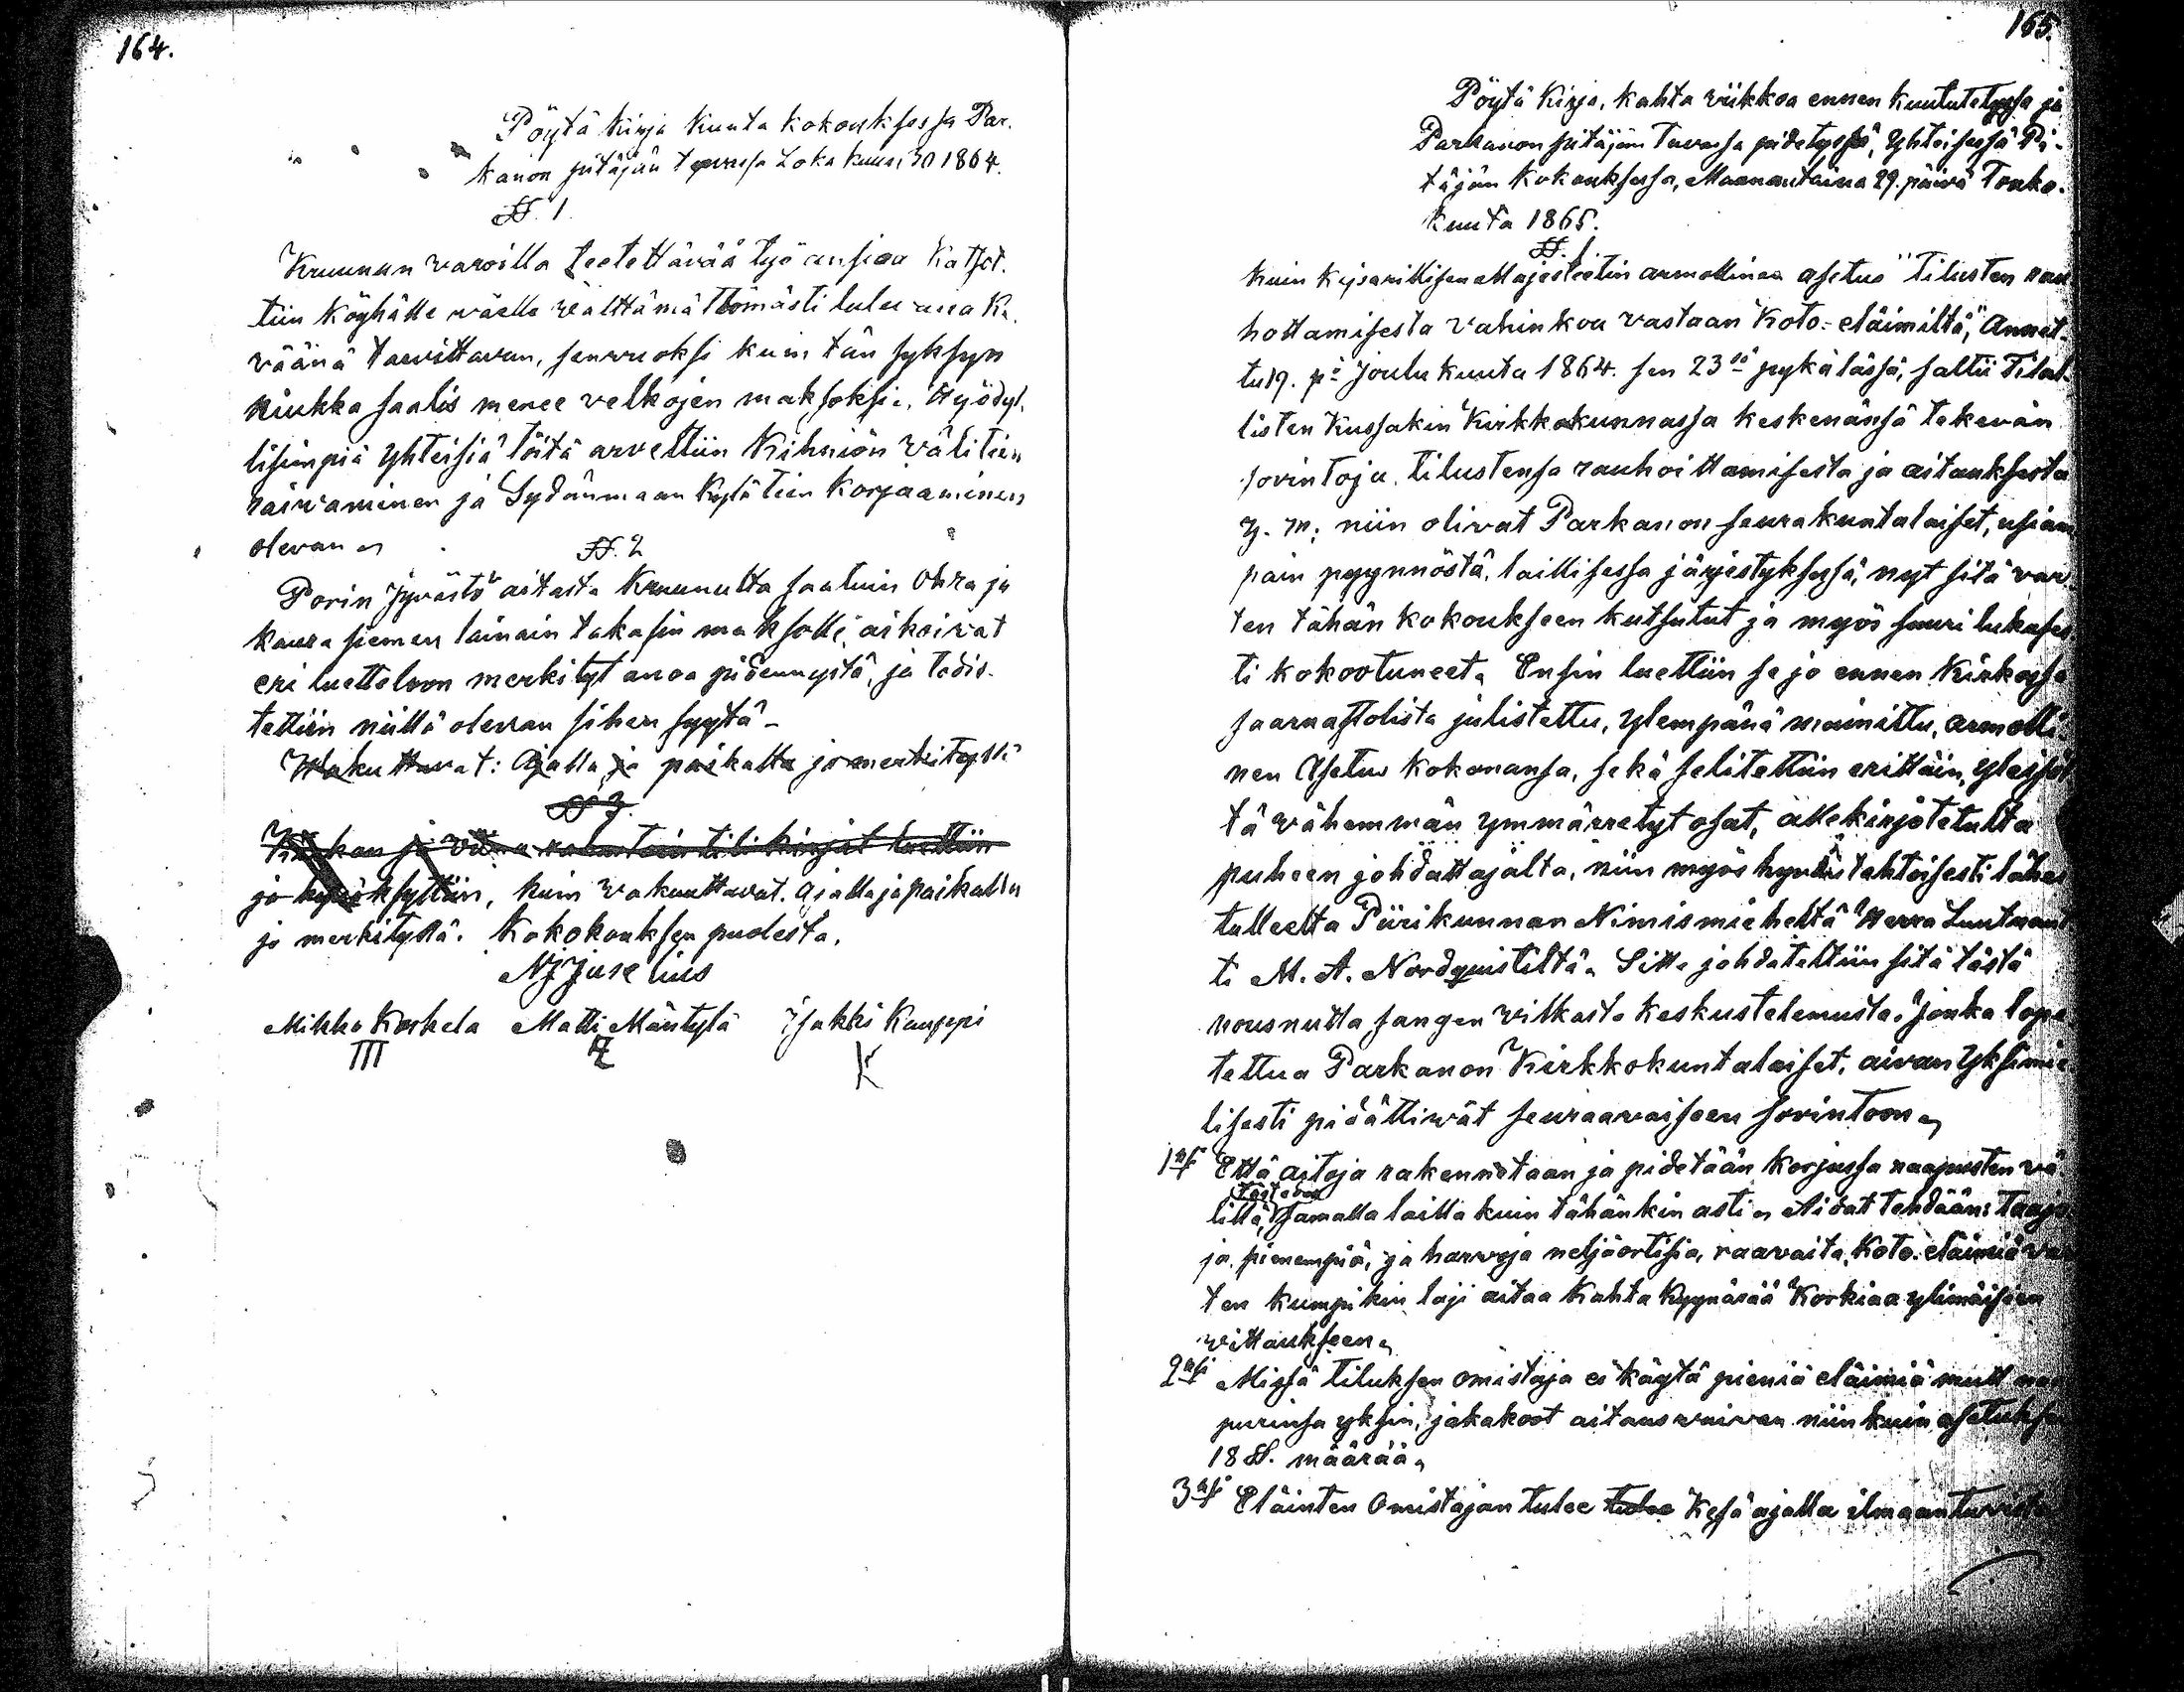 164.
Pöytä Kirja Kunta kokouksessa Par-
kanon pitäjän tuvassa Loka kuun 30 1864.
§§. 1
Kruunun varoilla teetettävää työ ansiaa Katsot-
tiin köyhälle väelle välttämättömästi tulevana Ke-
väänä tarvittavan, senvuoksi kuin tän syksyn
niukka saalis menee velkojen maksoksi. Hyödyl-
lisimpiä yhteisiä töitä arveltiin Kihniön välitien
raivaaminen ja Sydänmaan Kylä tien Korjaaminen
olevan
§§. 2
Porin Jyvästö aitasta Kruunulta saatuin Ohra ja
kaura siemen lainain takasin maksolle aikoivat
eri luetteloon merkityt anoa pidennystä, ja todis-
tettiin niillä olevan siihen syytä
Wakuttavat: Ajalla ja paikalla jo merkityllä
§§ 3.
Kirkon ja viina rahastoin tili kirjat luettiin
ja hyväksyttiin, kuin vakuuttavat. Ajalla ja paikalla
jo merkityllä. Kokokouksen puolesta,
N J Juselius
Mikko Koskela Matti Mäntylä Jsakki Kauppi
III K
165.
Pöytä Kirja, kahta viikkoa ennen kuulutetussa ja
Parkanon pitäjän tuvassa pidetyssä, Yhteisessä Pi-
täjän Kokouksessa, Maanantaina 29. päivä Touko-
kuuta 1865.
§§. 1.
Kuin Keisarillisen Majesteetin armollinen asetus "Tilusten rau
hottamisesta vahinkoa vastaan Koto-eläimiltä," Annet-
tu 19. pä Joulu kuuta 1864. sen 23 sä pykälässä, sallii Tilal-
listen Kussakin Kirkkokunnassa keskenänsä tekevän
sovintoja, tilustensa rauhoittamisesta ja aitauksesta
y. m; niin olivat Parkanon seurakuntalaiset, usiam
pain pyynnöstä, laillisessa järjestyksessä, nyt sitä var
ten tähän kokoukseen kutsutut ja myös suuri lukuses
ti kokootuneet. Ensin luettiin se jo ennen Kirkossa
saarnastolista julistettu, ylempänä mainittu, armolli-
nen Asetus kokonansa, sekä selitettiin erittäin, yleisöl
tä vähemmän ymmärretyt osat, allekirjotetulta
puheen johdattajalta, niin myös hyvän tahtoisesti lähes
tulleelta Piirikunnan Nimismieheltä Herra Luutnant
ti M. A. Nordqvistiltä. Sitte johdateltiin sitä tästä
nousnutta sangen vilkasta Keskustelemusta. Jonka lope
tettua Parkanon Kirkkokuntalaiset, aivan Yksimie
lisesti pidättivät seuraavaiseen sovintoon
1 ksi Että aitoja rakennetaan ja pidetään korjussa naapusten vä
lillä, samalla lailla kuin tähänkin asti. Aidat tehdään: Taaj
ja, pienempiä, ja harvoja neljäortisia, raavaita, Koto-eläimiä var
ten kumpikin laji aitaa Kahta Kyynärää Korkiaa ylimäiseen
vittaukseen
2 ksi Missä tiluksen omistaja ei käytä pieniä eläimiä mutt naa
purinsa yksin, jakakoot aitaus vaivan niin kuin asetuksen
18 §. määrää
3 ksi Eläinten Omistajan tulee tulee Kesä ajalla